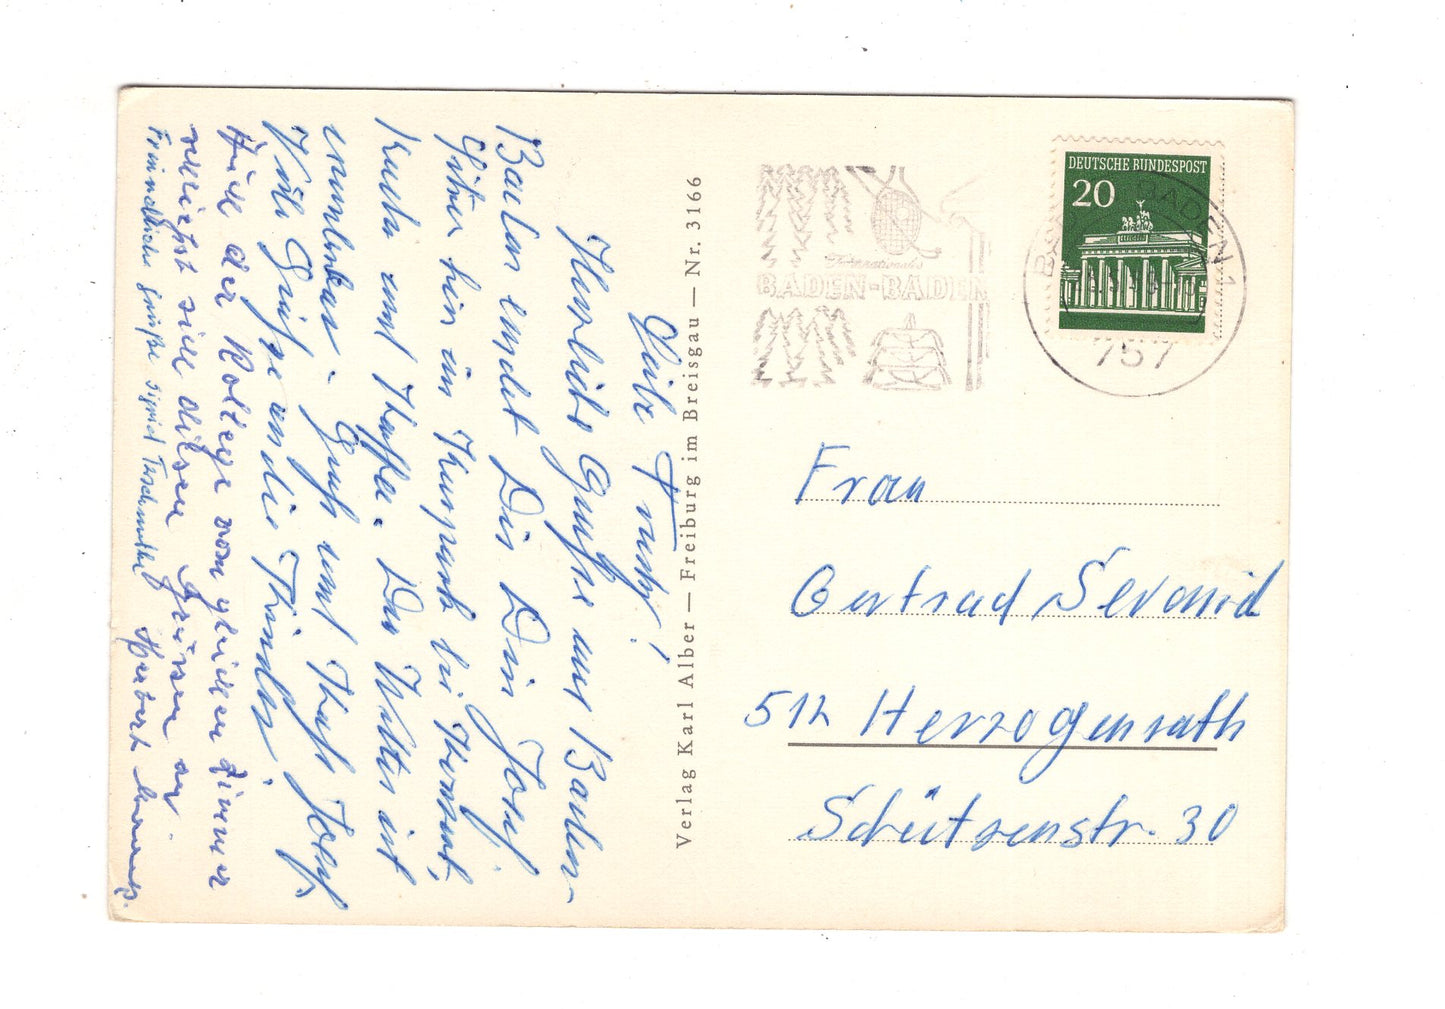 Liebe Trudy!
Herzliche Grüße aus Baden
Baden sendet Dir Dein Josef.
Sitze hier im Kurpark bei Konzert,
und Kaffee. Das Wetter ist
wunderbar. Gruß und Kuß Josef.
Viele Grüße an die Kinder.
der Kollege vom gleichen Zimmer
sich diesen Grüsen an
Herbert
Freundliche Grüße Sigrid
Verlag Karl Alber — Freiburg im Breisgau — Nr. 3166
Internationales
BADEN-BADEN
DEUTSCHE BUNDESPOST
20
BADEN-BADEN 1
757
Frau
Gertrud
512 Herzogenrath
Schützenstr. 30